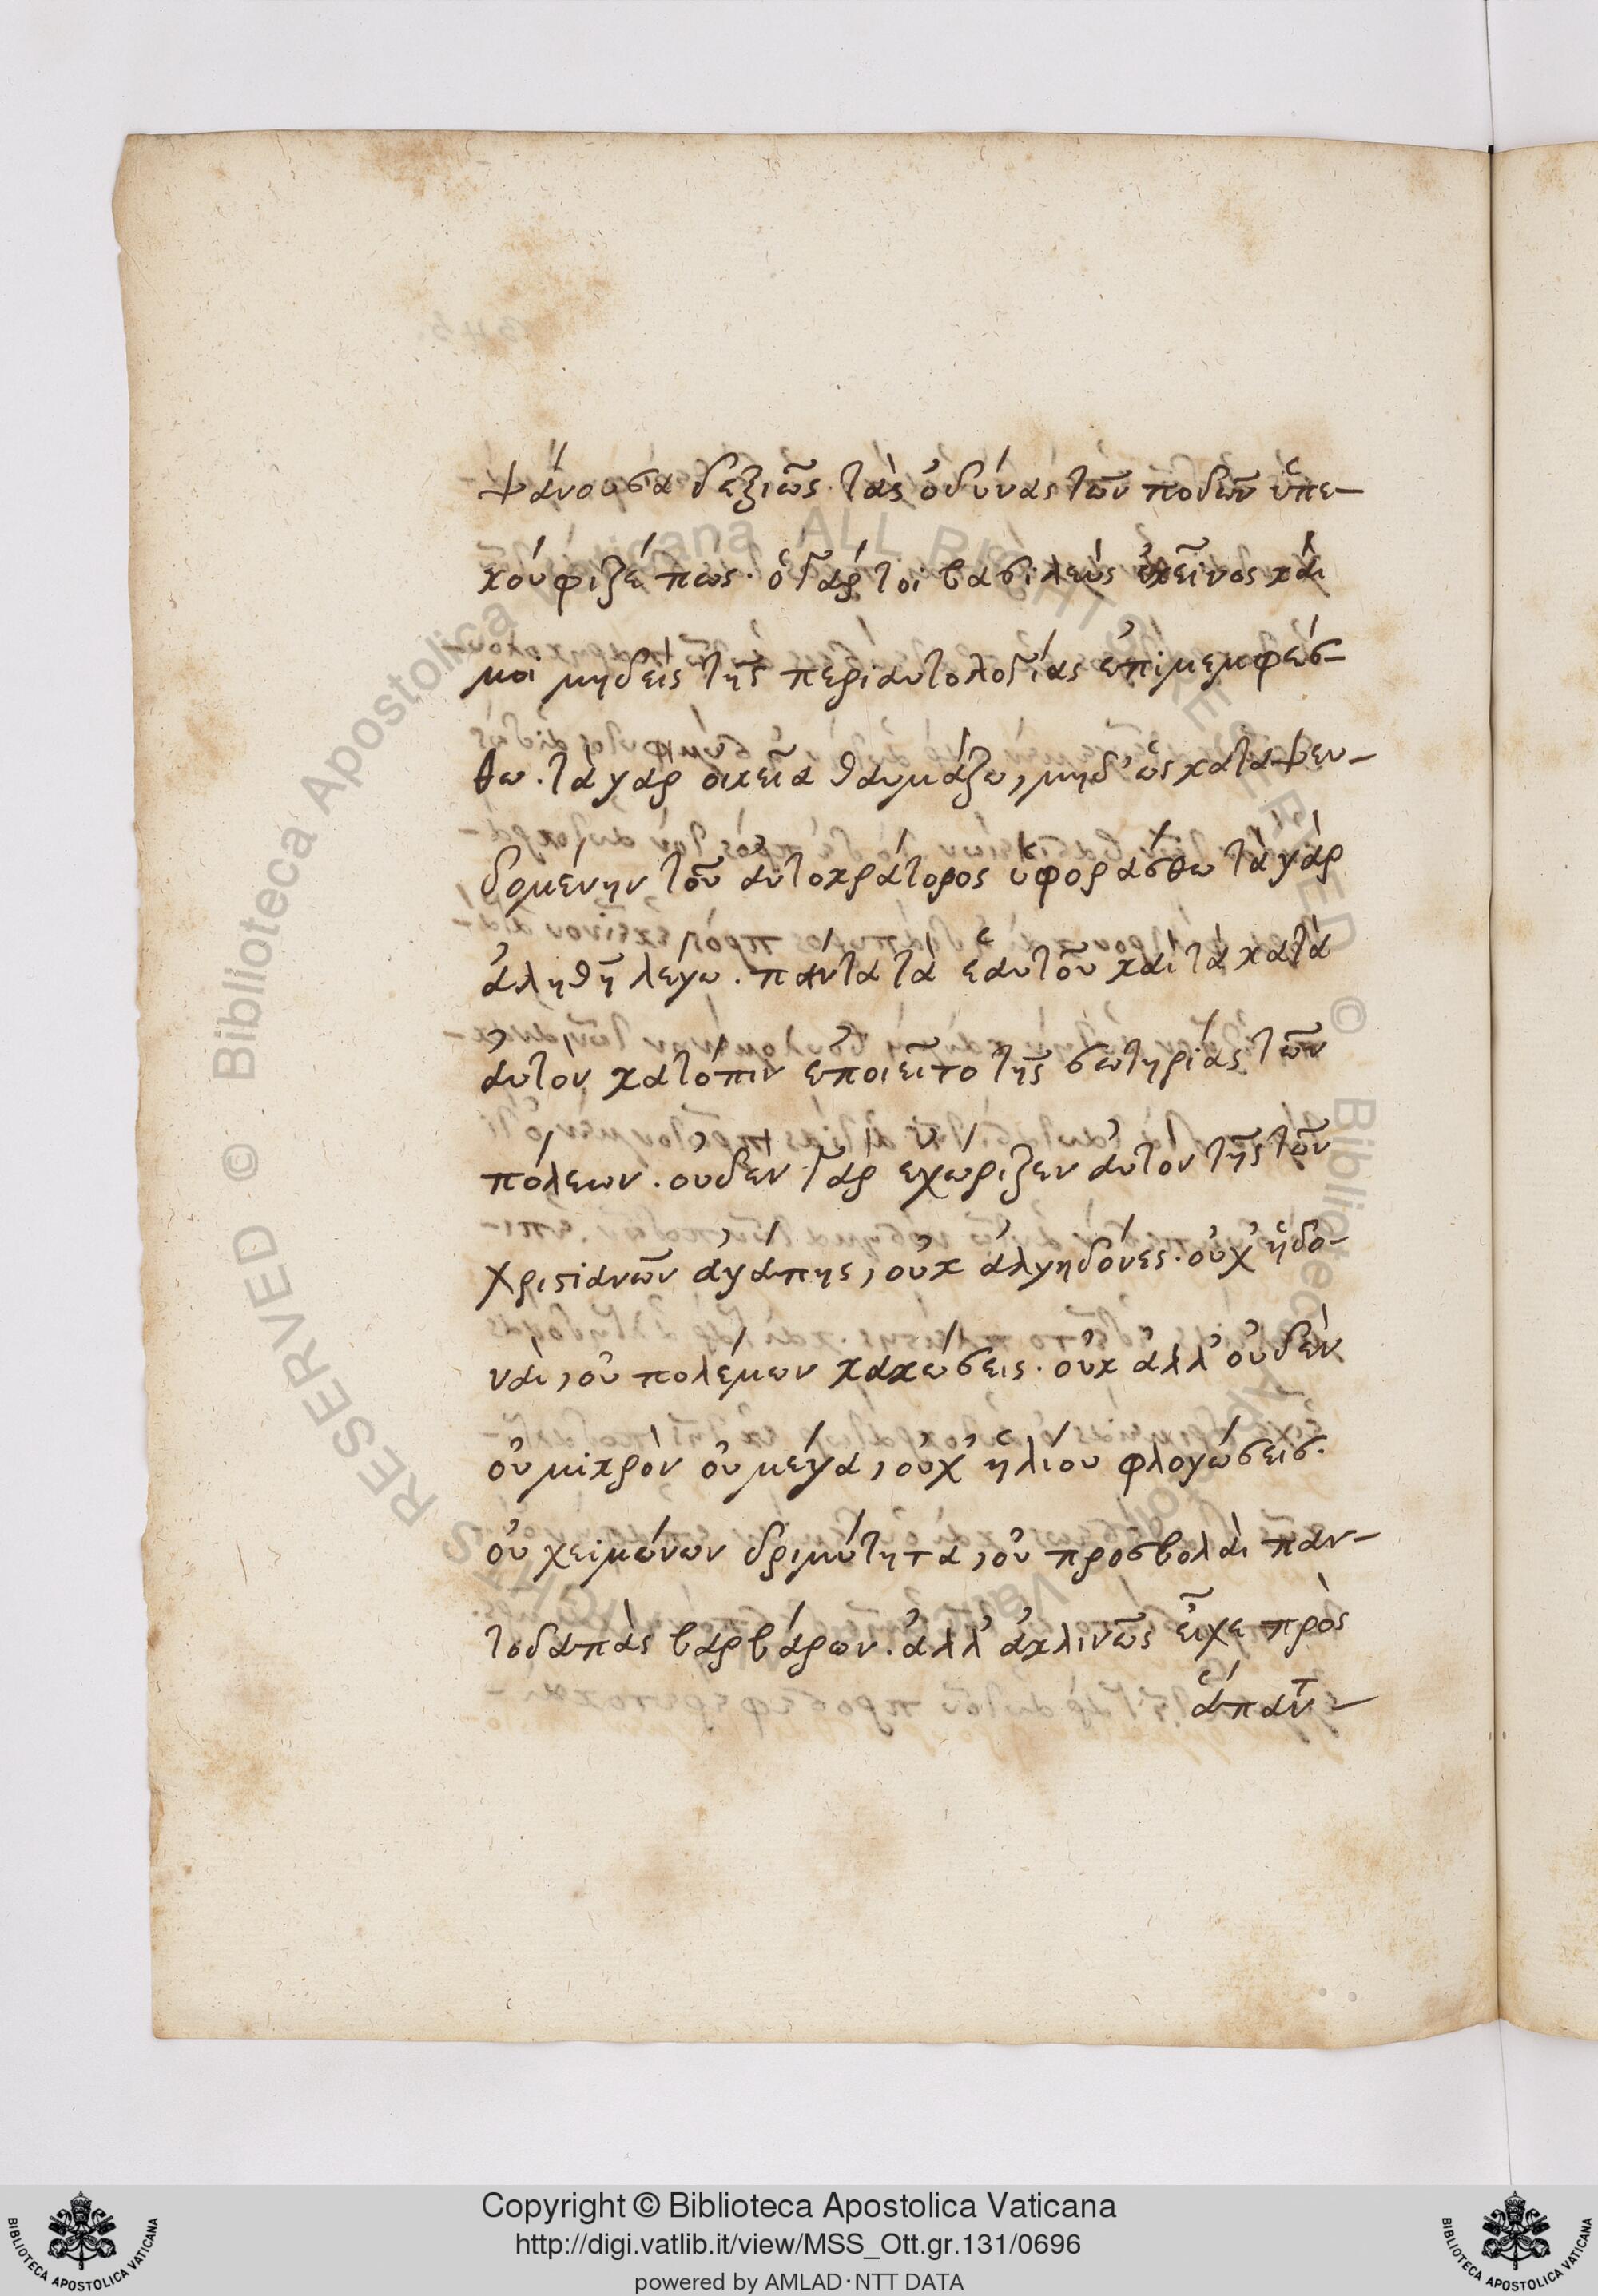 ψάνουσα δεξιῶς τὰς ὀδύνας τῶν ποδῶν ὑπε-
κούφιζέ πως· ὁ γάρ τοι βασιλεὺς ἐκεῖνος καί
μοι μηδεὶς τῆς περιαυτολογίας ἐπιμεμφέσ-
θω. τὰ γὰρ οἰκεῖα θαυμάζω, μηδ' ὡς καταψευ-
δομένην τοῦ αὐτοκράτορος ὑφοράσθω τὰ γὰρ
ἀληθῆ λέγω. πάντα τὰ ἑαυτοῦ καὶ τὰ κατὰ
αὐτὸν κατόπιν ἐποιεῖτο τῆς σωτηρίας τῶν
πόλεων. οὐδὲν γὰρ ἐχώριζεν αὐτὸν τῆς τῶν
χριστιανῶν ἀγάπης, οὐκ ἀλγηδόνες. οὐχ ἡδο-
ναὶ, οὐ πολέμων κακώσεις. οὐκ ἀλλ' οὐδὲν
οὐ μικρὸν οὐ μέγα, οὐχ ἡλίου φλογώσεις.
οὐ χειμώνων δριμύτητα, οὐ προσβολαὶ παν-
τοδαπὰς βαρβάρων. ἀλλ' ἀκλινῶς εἶχε πρὸς
ἅπαντ-
Copyright © Biblioteca Apostolica Vaticana
http://digi.vatlib.it/view/MSS_Ott.gr.131/0696
powered by AMLAD·NTT DATA
BIBLIOTECA APOSTOLICA VATICANA
BIBLIOTECA APOSTOLICA VATICANA